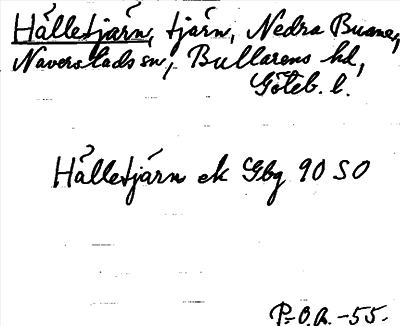 Hålletjärn, tjärn, Nedra Buane,
Naverstads sn, Bullarens hd,
Göteb. l.
Hålletjärn ek Gbg 90 SO
P-O.R. -55.